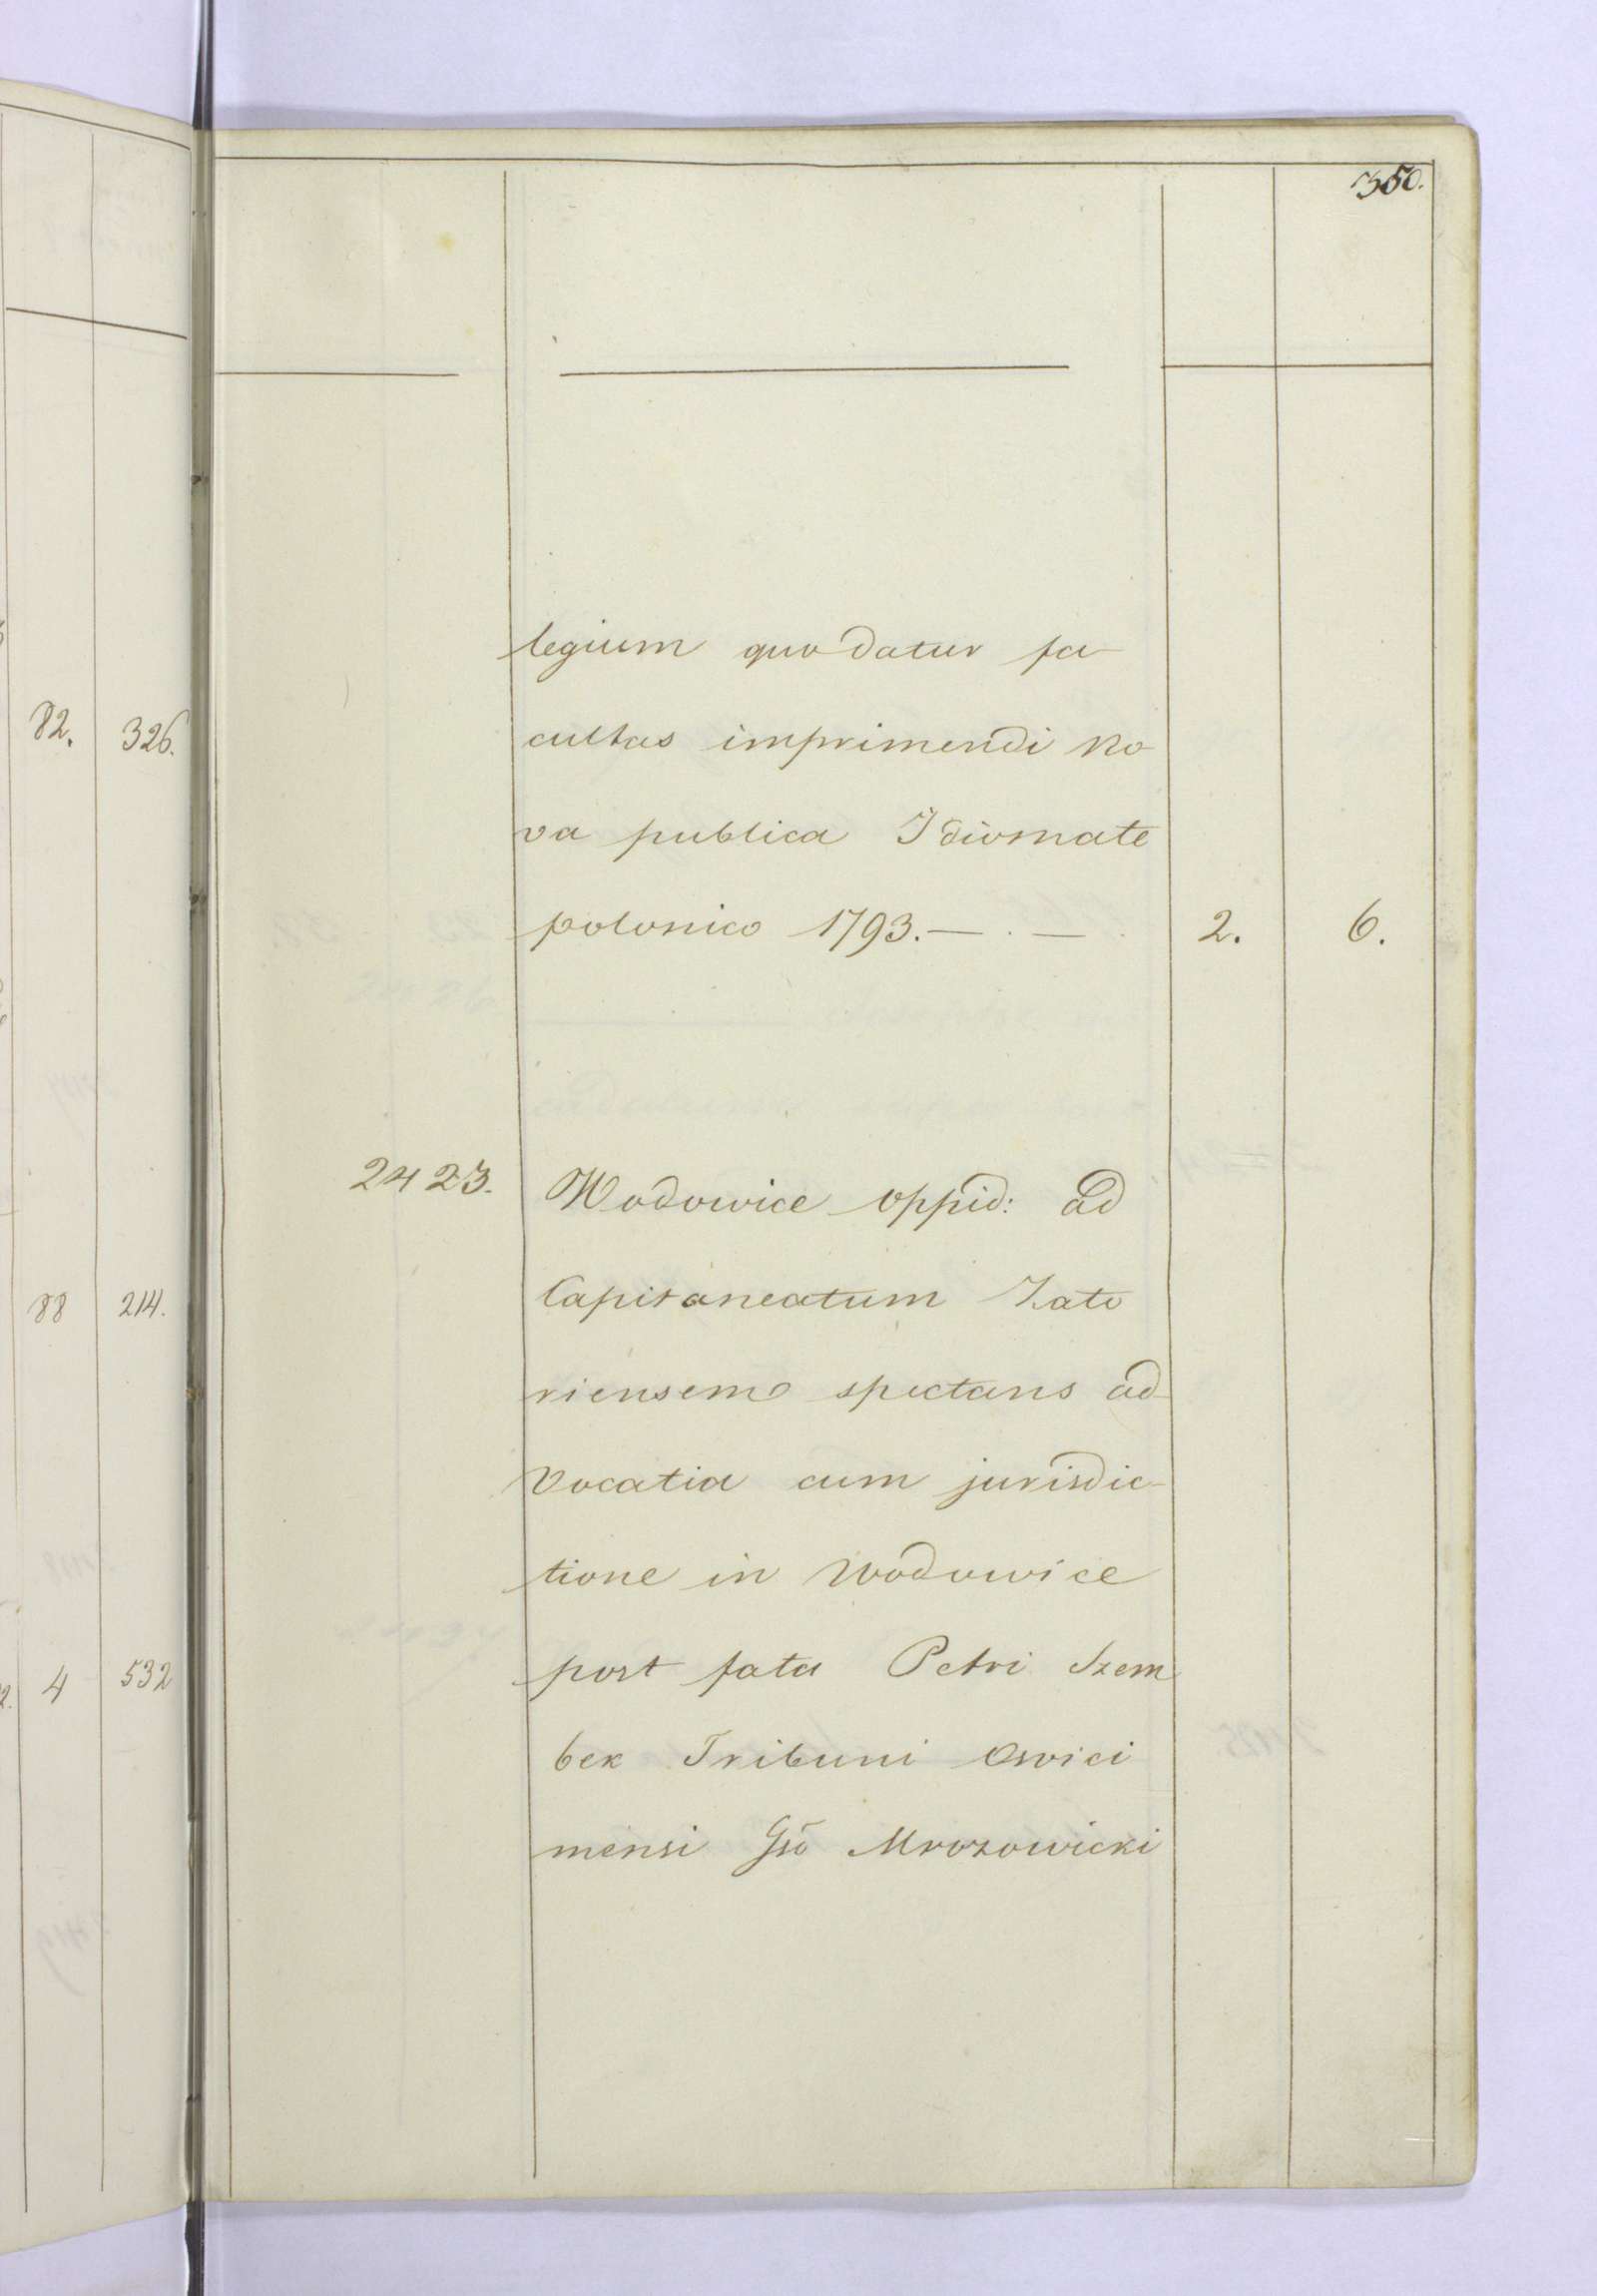 350.
legium quo datur fa-
cultas imprimendi No-
va publica Idiomate
polonico 1793.—.— 2. 6.
2423. Wodowice oppid: ad
Capitaneatum Zato
riensem spectans ad-
vocatia cum jurisdic-
tione in Wodowice
post fata Petri Szem
bek Tribuni Oswici
mensi Gso Mrozowicki
82. 326.
88 214.
4 532